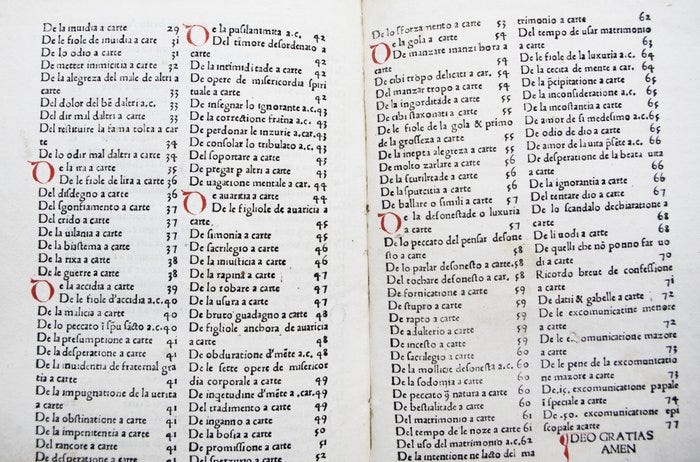 De la inuidia a carte 29
De le fiole de inuidia a carte 31
De lo odio a carte 31
De metter inimicitia a carte 32
De la alegreza del male de altri a
carte 33
Del dolor del bē daltri a.c. 33
Del dir mal daltri a carte 33
Del restituire la fama tolta a car
te 34
De lo odir mal daltri a carte 35
De la ira a carte 35
De le fiole de lira a carte 36
Del disdegno a carte 36
Del sgonfiamento a carte 37
Del crido a carte 37
De la uilania a carte 37
De la biastema a carte 37
De la rixa a carte 38
De le guerre a carte 38
De la accidia a carte 39
De le fiole d'accidia a.c. 40
De la malicia a carte 40
De lo peccato i spu sācto a.c. 40
De la presumptione a carte 41
De la desperatione a carte 41
De la inuidentia de fraternal gra
tia a carte 41
De la impugnatione de la uerita
a carte 41
De la obstinatione a carte 41
De la impenitentia a carte 41
Del rancore a carte 41
De la pusilanimita a.c. 42
Del timore desordenato a
carte 42
De la intimiditade a carte 42
De opere de misericordia spiri
tuale a carte 42
De insegnar lo ignorante a.c. 43
De la correctione fratna a.c. 43
De perdonar le inzurie a.car. 43
De consolar lo tribulato a.c. 43
Del soportare a carte 43
De pregar p altri a carte 43
De uagatione mentale a car. 44
De auaritia a carte 44
De le figliole de auaricia a
carte. 45
De simonia a carte 45
De sacrilegio a carte 46
De la iniusticia a carte 46
De la rapina a carte 47
De lo robare a carte 47
De la usura a carte 47
De bruto guadagno a carte 48
De figliole anchora de auaricia
a carte 48
De obduratione d'mēte a.c. 48
De le sette opere de misericor
dia corporale a carte 49
De inqetudine d'mēte a.car. 49
Del tradimento a carte 49
De inganno a carte 49
De la bosia a carte 50
De promissione a carte 51
De spergiurio a carte 52
De lo sforzamento a carte 53
De la gola a carte 54
De manzare inanzi hora a
carte 54
De cibi tropo delicati a car. 54
Del manzar tropo a carte 54
De la ingorditade a carte 55
De cibi staxonati a carte 55
De le fiole de la gola & primo
de la grosseza a carte 55
De la inepta alegreza a carte 55
De molto zarlare a carte 56
De la scutilitade a carte 56
De la spurcitia a carte 56
De ballare o simili a carte 57
De la desonestade o luxuria
a carte 57
De lo peccato del pensar desone
sto a carte 58
De lo parlar desonesto a carte. 58
Del tochare desonesto a car. 58
De fornicatione a carte 59
De stupro a carte 59
De rapto a carte 59
De adulterio a carte 59
De incesto a carte 59
De sacrilegio a carte 60
De la mollicie desonesta a.c. 60
De la sodomia a carte 60
De peccato q̄ natura a carte 60
De bestialitade a carte 60
Del matrimonio a carte 61
Del tempo de le noze a carte 61
Del uso del matrimonio a.c. 62
De la intentione ne lacto del ma
trimonio a carte 62
Del tempo de usar matrimonio
a carte 63
De le fiole de la luxuria a.c. 64
De la cecita de mente a car. 64
De la p̄cipitatione a carte 65
De la inconsideratione a.c. 65
De la inconstantia a carte 65
De amor de si medesimo a.c. 65
De odio de dio a carte 65
De amor de la uita p̄sēte a.c. 66
De desperatione de la beata uita
a carte 66
De la ignorantia a carte 66
Del tentare dio a carte 67
De lo scandalo dechiaratione a
carte 68
De li uodi a carte 68
De quelli che nō ponno far uo
di a carte 70
Ricordo breue de confessione
a carte 71
De datii & gabelle a carte 72
De le excomunicatine menore
a carte 72
De le excomunicatione mazore
a carte 73
De le pene de la excomunicatio
ne mazore a carte 73
De.ix. excomunicatione papale
i speciale a carte 74
De .50. excomunicatione epi
scopale acarte 77
DEO GRATIAS
AMEN